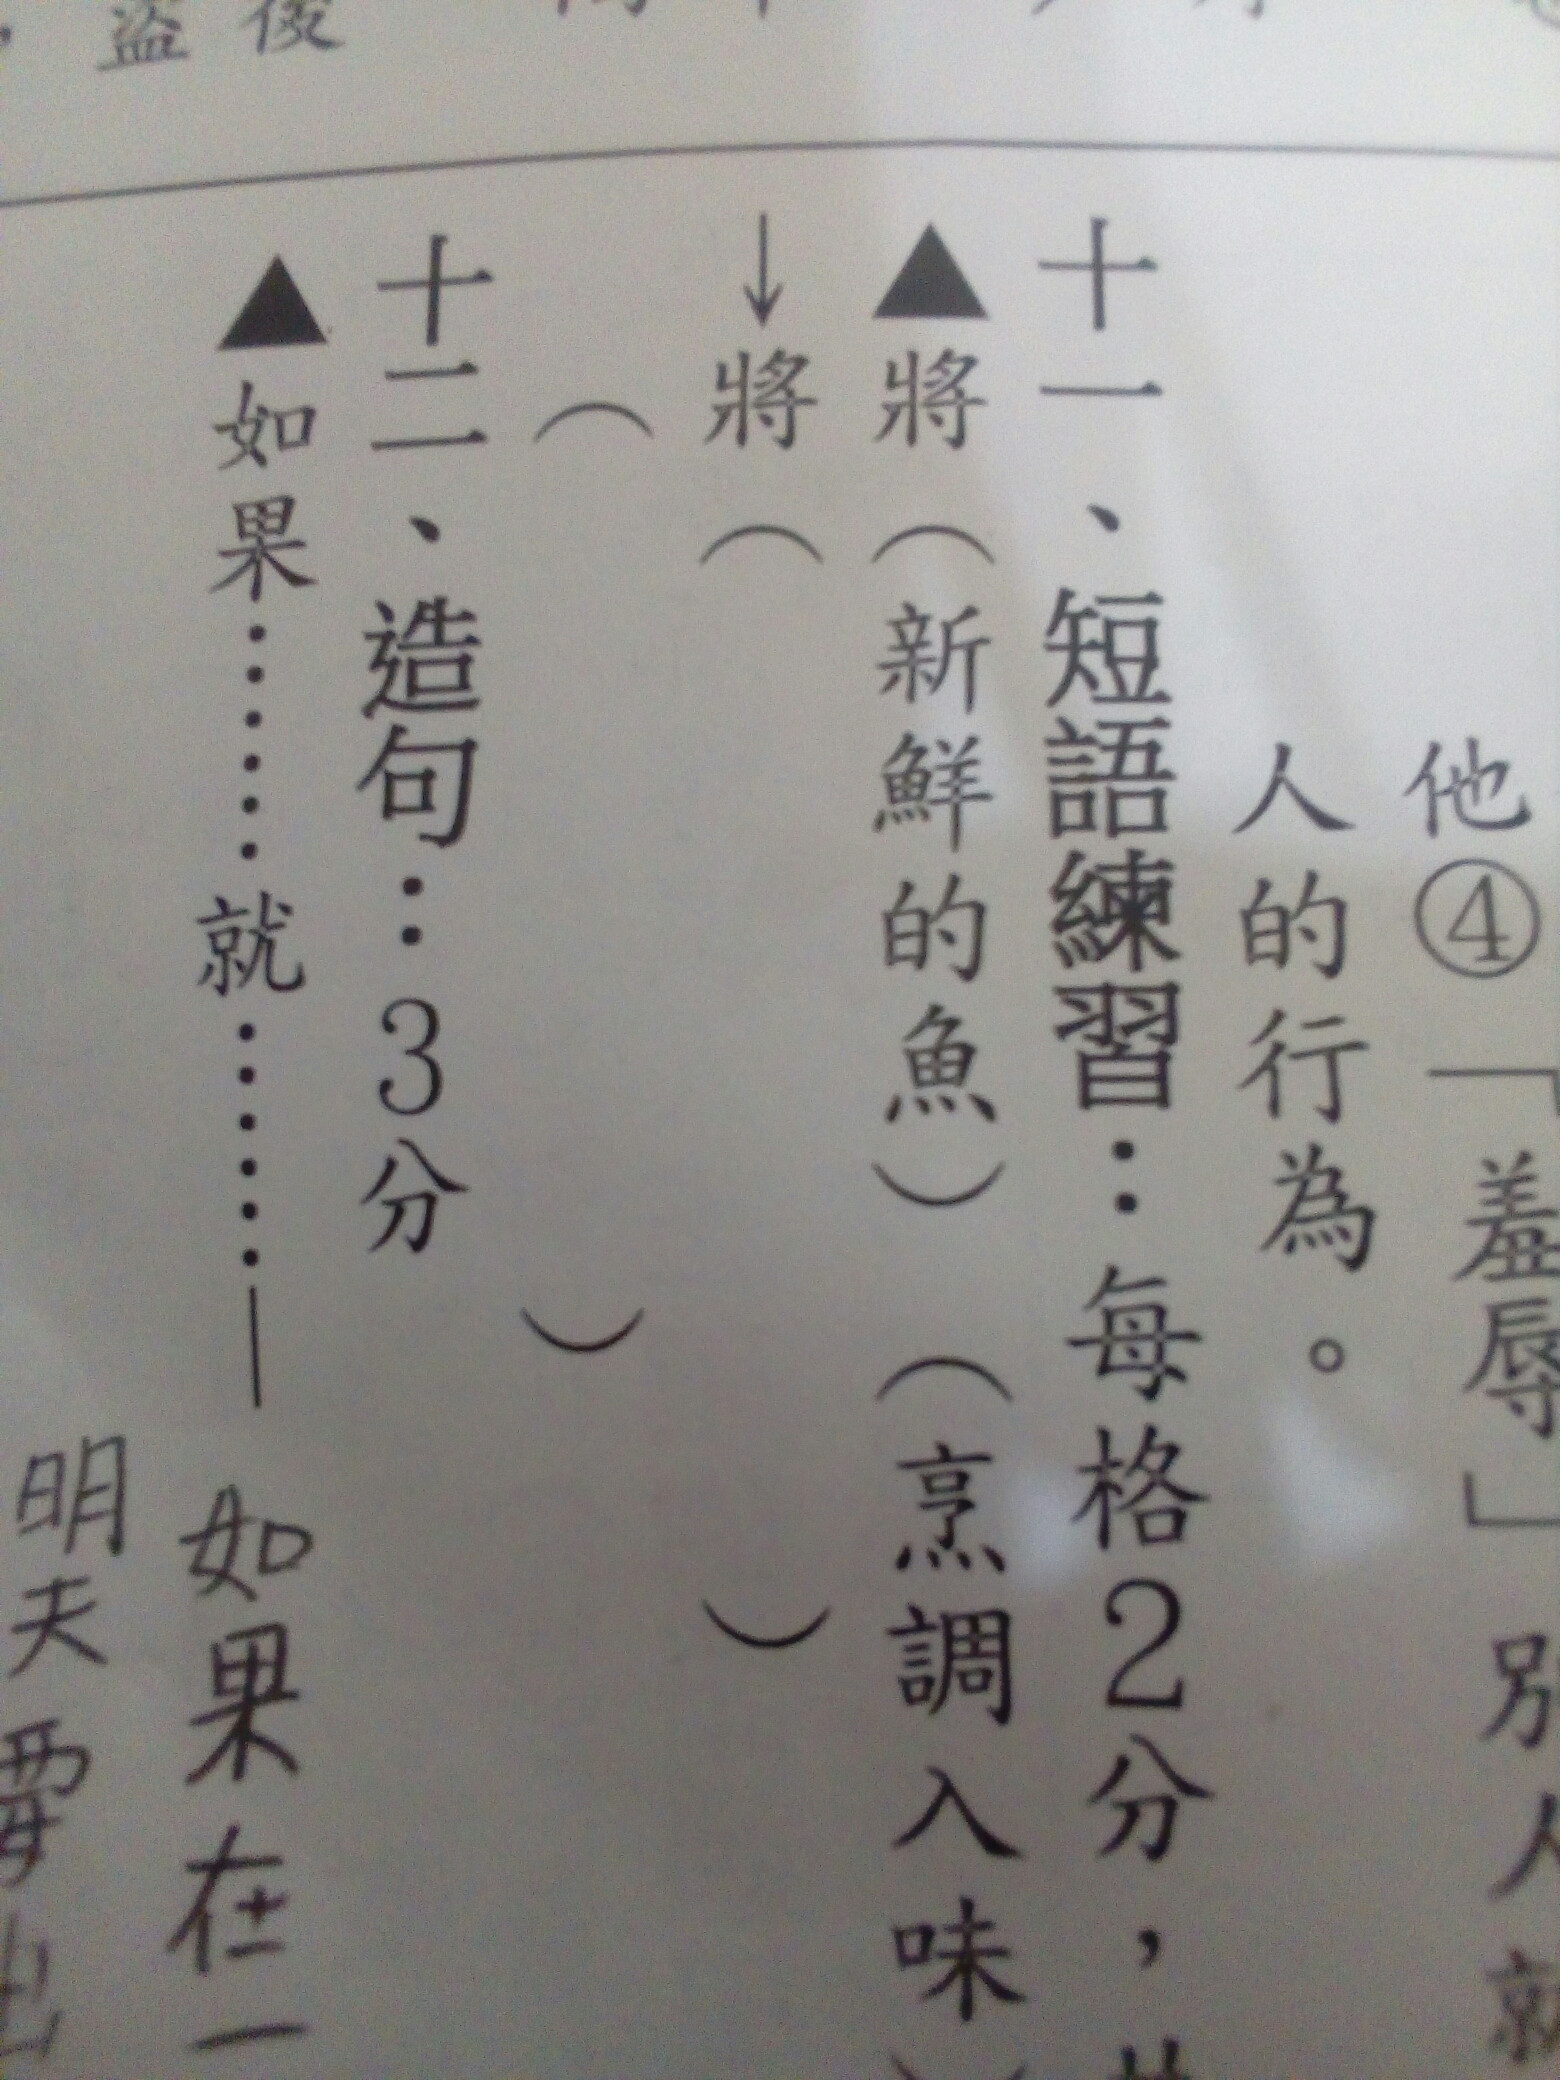 他④「羞辱」別人就
人的行為。
十一、短語練習：每格2分，共
▲將（新鮮的魚）（烹調入味）
↓將（　　　　　　　）
（　　　　　　　）
十二、造句：3分
▲如果⋯⋯就⋯⋯—如果在一
明天要出
盜後